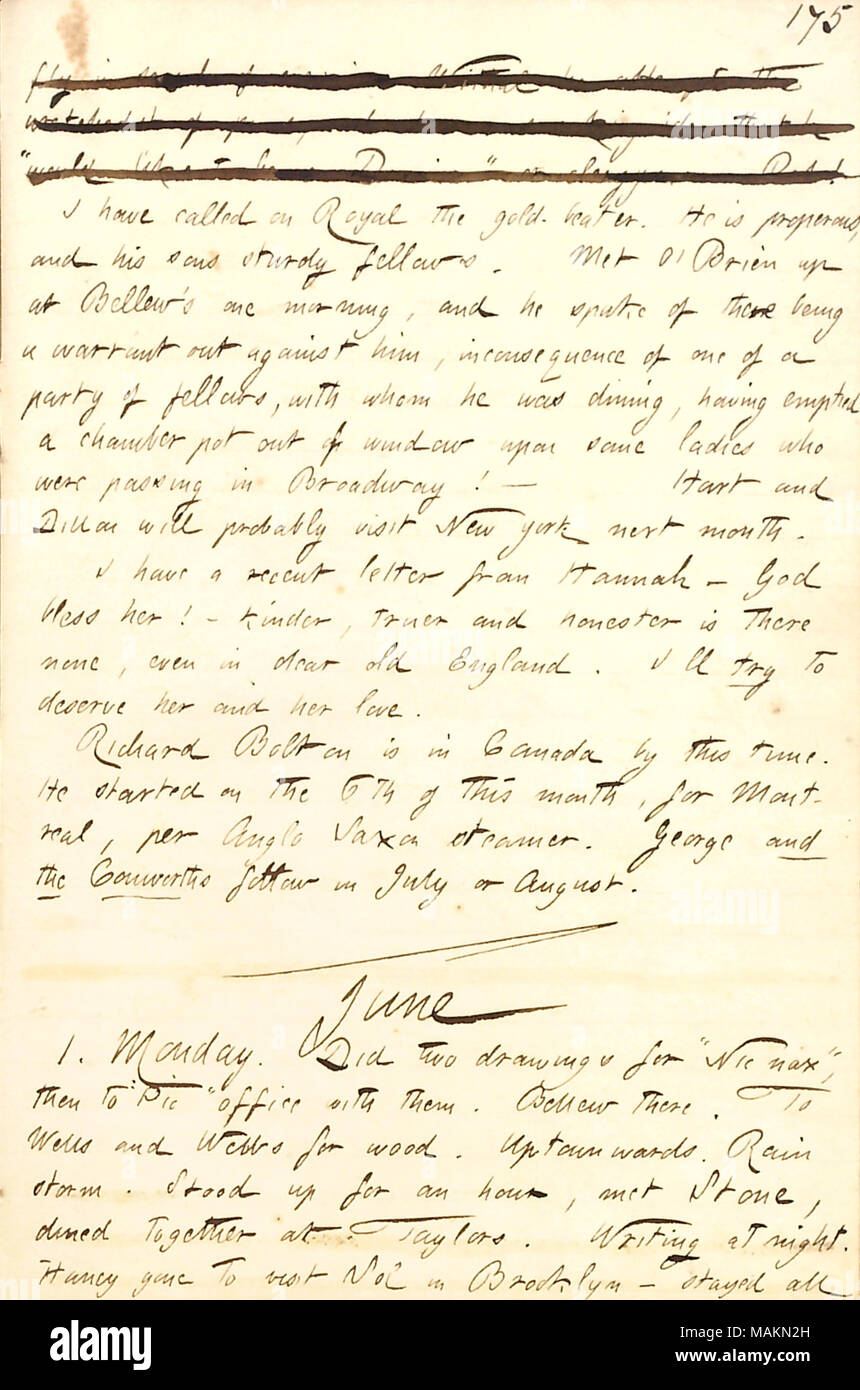 175
"would like to
I have called on Royal the gold-beater. He is properous,
and his sons sturdy fellows. Met O'Brien up
at Bellew's one morning, and he spake of there being
a warrant out against him, inconsequence of one of a
party of fellows, with whom he was dining, having emptied
a chamber pot out of window upon some ladies who
were passing in Broadway! — Hart and
Dillon will probably visit New York next month.
I have a recent letter from Hannah — God
bless her! — kinder, truer and honester is there
none, even in dear old England. I'll try to
deserve her and her love.
Richard Bolton is in Canada by this time.
He started on the 6th of this month, for Mont-
real, per Anglo Saxon steamer. George and
the Conworths follow in July or August.
June
1. Monday. Did two drawings for "Nic nax",
then to "Pic" office with them. Bellew there. To
Wells and Webbs for wood. Uptownwards. Rain
storm. Stood up for an hour, met Stone,
dined together at Taylors. Writing at night.
Haney gone to visit Sol in Brooklyn — stayed all
alamy
Image ID: MAKN2H
www.alamy.com